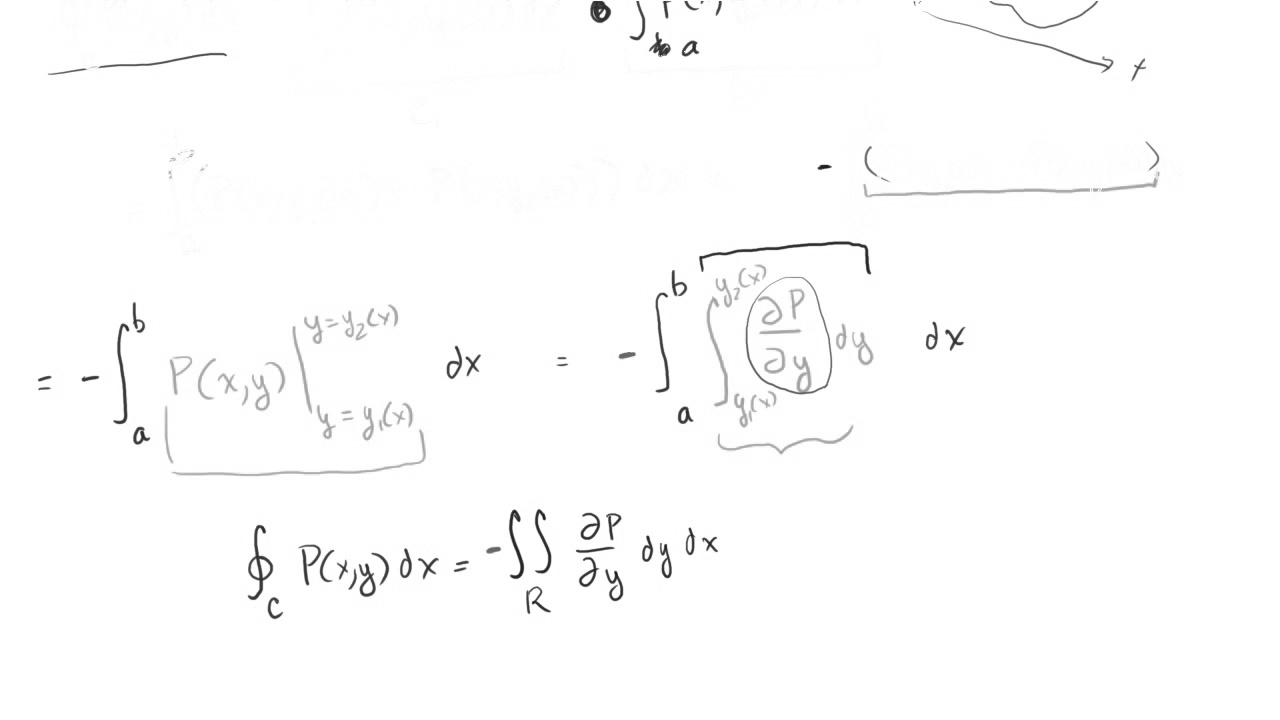 ∫ a
x
- ( )
= - ∫_a^b P(x,y) |_{y=y₁(x)}^{y=y₂(x)} dx = - ∫_a^b ∫_{y₁(x)}^{y₂(x)} ∂P/∂y dy dx
∮_C P(x,y) dx = -∬_R ∂P/∂y dy dx